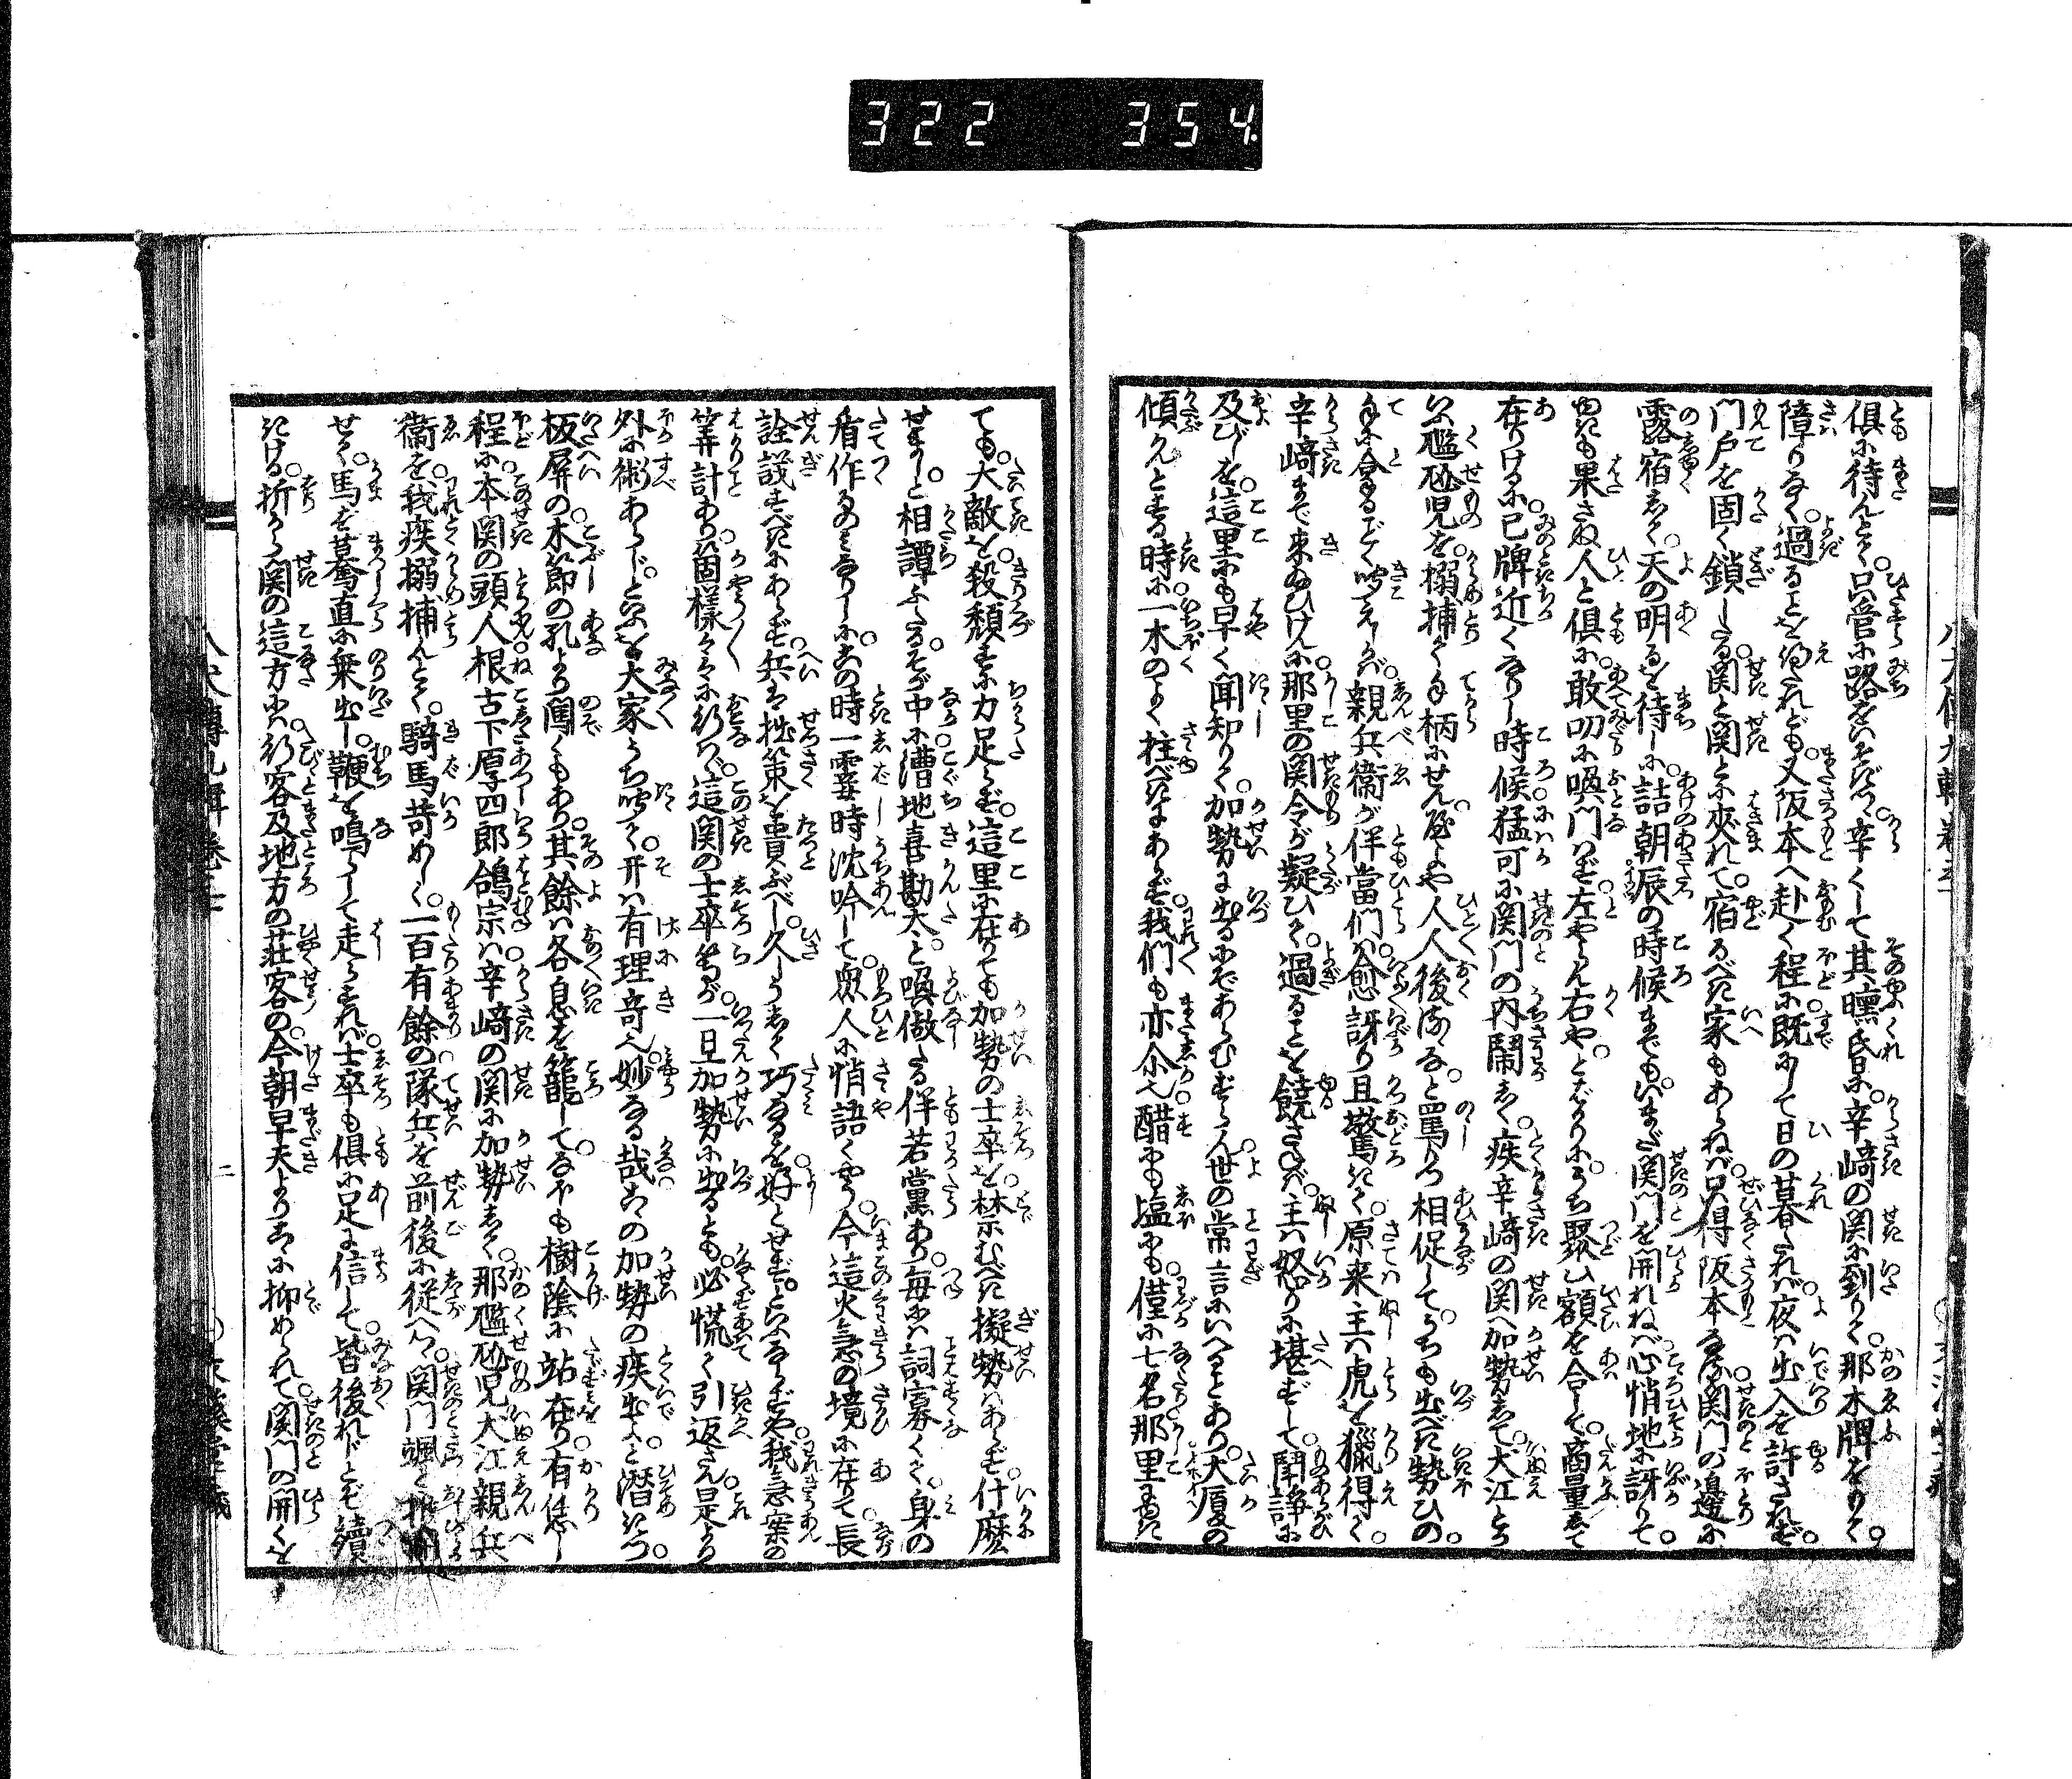 322 354
俱に待んとて。只管に路をいそぎつゝ。辛くして其曛昏に。辛﨑の関に到りて。那木牌をもて。
障りなく。過ることを得たれども。又阪本へ赴く程に。既にして日の暮たれば。夜は出入を許されず。
門戸を固く鎖したる。関と関とに夾れて。宿るべき家もあらねば。只得阪本なる。関門の邊に
露宿しつ。天の明るを待しに。詰朝辰の時候までも。いまだ関門を開れねば。心悄地に訝りて。
も果さぬ人と俱に。敢叨に喚門はず。左やらん右やとばかりに。うち聚ひ額を合して。商量して
在りけるに。已牌近くなりし時候。猛可に関門の内鬧しく。疾辛﨑の関へ加勢して。犬江とら
いふ癖児を。搦捕て手柄にせん。やよや人人後るゝなと。罵りつ相促して。うちも出べき勢ひの。
手に合るごとく聞えしかば。親兵衛が伴當們は。愈訝り且驚きて。原来主は虎を獵得て。
辛﨑まで来ぬひけんに。那里の関令が疑ひて。過ることを饒さねば。主は怒りに堪ずして。鬪諍に
及びしを。這里にも早く聞知りて。加勢に出るにぞあらむずらん。世の常言にいへることあり。大厦の
傾んとする時に。一木のよく拄べきにあらず。我們も亦尒也。醋にも塩にも。僅に七名那里にゆき
ても。大敵を殺頽すに力足らず。這里に在りても加勢の士卒を。禁むべき擬勢はあらず。什麽
せましと相譚ふる。そが中に漕地喜勘太と。喚做たる伴若黨あり。毎には詞寡くて。身の
看作るのみなりしに。この時一霎時沈吟して。衆人に悄語くやう。今這火急の境に在りて。長
詮議すべきにあらず。兵は拙策を貴ぶべし。久しうして巧なるを好とせず。といふならずや。我急案の
筭計あり。箇樣々々に行はゞ。這関の士卒們が。一旦加勢に出るとも。必慌て引返さん。是より
外に術あらじ。といふを大家うち聞て。开は有理奇也。妙なる哉。この加勢の疾出よと潜びつ。
板屏の木節の孔より闖くもあり。其餘は各息を籠して。なほも樹陰に站在り。有恁し
程に。本関の頭人根古下厚四郎鴿宗は。辛﨑の関に加勢して。那癖児犬江親兵
衛を。我疾搦捕んとて。騎馬苛めしく。一百有餘の隊兵を前後に従へつ。関門颯と推開
せて。馬を驀直に乗出し。鞭を鳴らして走らすれば。士卒も俱に足に信して。皆後れじとぞ續
きける。折から関の這方には。行客及地方の荘客の。今朝早天よりこゝに抑められて。関門の開くを
二